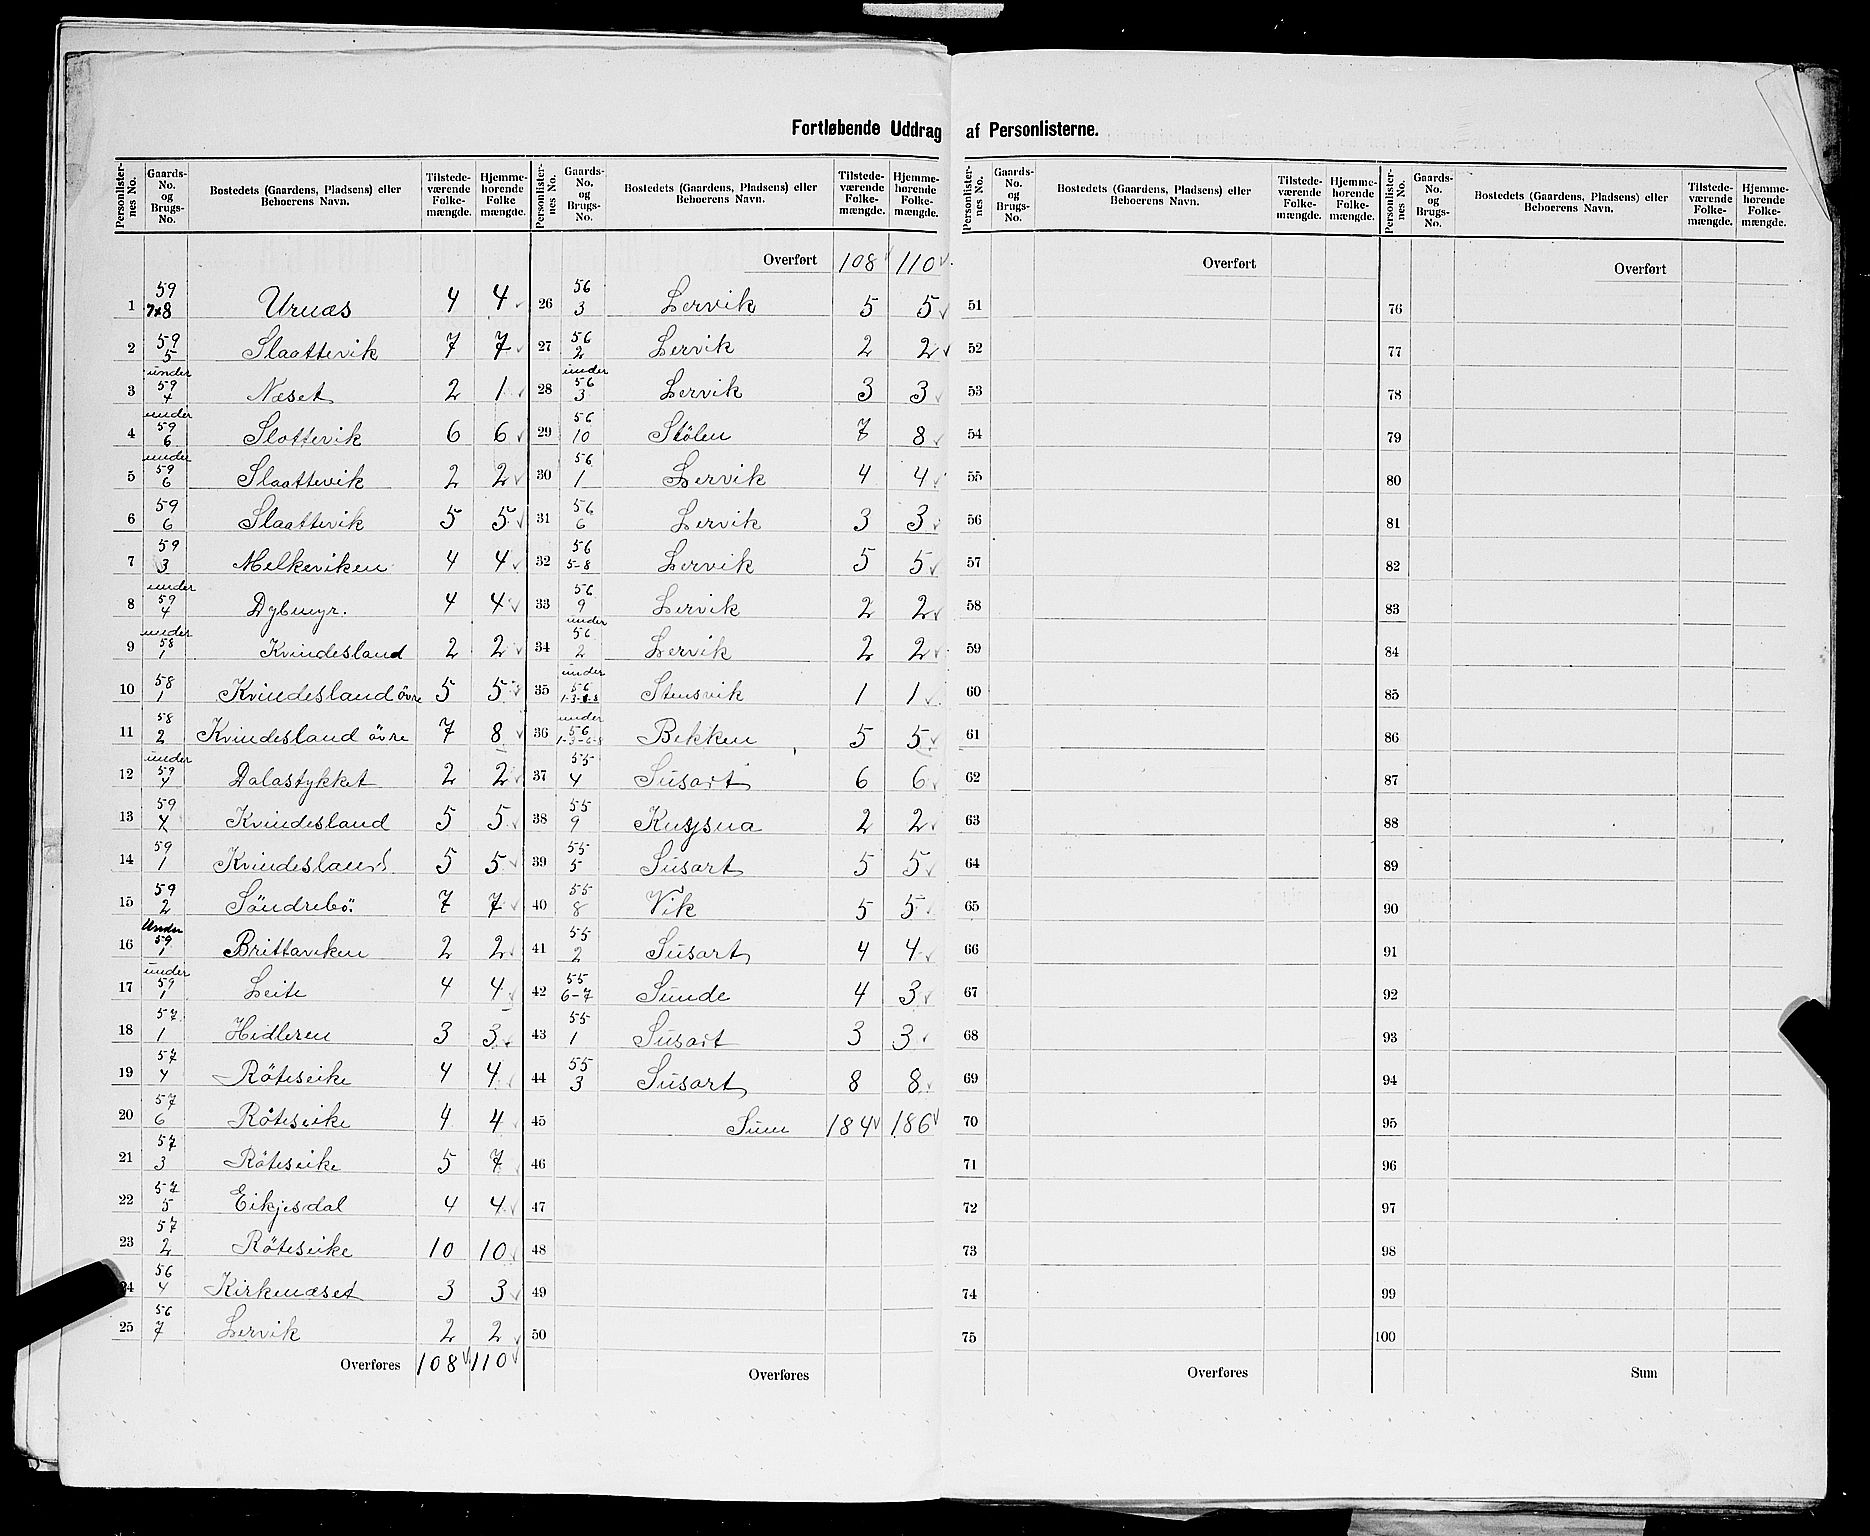 Fortløbende Uddrag af Personlisterne.
Personlister-nes No. | Gaards-No. og Brugs-No. | Bostedets (Gaardens, Pladsens) eller Beboerens Navn. | Tilstede-værende Folke-mængde. | Hjemme-hørende Folke mængde.
1 | 59 7+8 | Urnæs | 4 | 4
2 | 59 5 | Slaattevik | 7 | 7
3 | under 59 4 | Næset | 2 | 1
4 | under 59 6 | Slottevik | 6 | 6
5 | under 59 6 | Slaattevik | 2 | 2
6 | 59 6 | Slaattevik | 5 | 5
7 | 59 3 | Melkeviken | 4 | 4
8 | under 59 4 | Dybmyr. | 4 | 4
9 | under 58 1 | Kvindesland | 2 | 2
10 | 58 1 | Kvindesland övre | 5 | 5
11 | 58 2 | Kvindesland övre | 7 | 8
12 | under 59 4 | Dalastykket | 2 | 2
13 | 59 4 | Kvindesland | 5 | 5
14 | 59 1 | Kvindesland | 5 | 5
15 | 59 2 | Söndrebö. | 7 | 7
16 | Under 59 1 | Brittaviken | 2 | 2
17 | under 59 1 | Leite | 4 | 4
18 | 57 1 | Hidleren | 3 | 3
19 | 57 4 | Röteseike | 4 | 4
20 | 57 6 | Röteseike | 4 | 4
21 | 57 3 | Röteseike | 5 | 7
22 | 57 5 | Eikjesdal | 4 | 4
23 | 57 2 | Röteseike | 10 | 10
24 | 56 4 | Kirkenæset | 3 | 3
25 | 56 7 | Lervik | 2 | 2
Overføres | 108 | 110
Personlister-nes No. | Gaards-No. og Brugs-No. | Bostedets (Gaardens, Pladsens) eller Beboerens Navn. | Tilstede-værende Folke-mængde. | Hjemme-hørende Folke-mængde.
Overført | 108 | 110
26 | 56 3 | Lervik | 5 | 5
27 | 56 2 | Lervik | 2 | 2
28 | under 56 3 | Lervik | 3 | 3
29 | 56 10 | Stölen | 7 | 8
30 | 56 1 | Lervik | 4 | 4
31 | 56 6 | Lervik | 3 | 3
32 | 56 5-8 | Lervik | 5 | 5
33 | 56 9 | Lervik | 2 | 2
34 | under 56 2 | Lervik | 2 | 2
35 | under 56 1-3-6-8 | Stensvik | 1 | 1
36 | under 56 1-3-6-8 | Bekken | 5 | 5
37 | 55 4 | Susart | 6 | 6
38 | 55 9 | 2 | 2
39 | 55 5 | Susart | 5 | 5
40 | 55 8 | Vik | 5 | 5
41 | 55 2 | Susart | 4 | 4
42 | 55 6-7 | Sunde | 4 | 3
43 | 55 1 | Susart | 3 | 3
44 | 55 3 | Susart | 8 | 8
45 | Sum | 184 | 186
46
47
48
49
50
Overføres
Personlister-nes No. | Gaards-No. og Brugs-No. | Bostedets (Gaardens, Pladsens) eller Beboerens Navn. | Tilstede-værende Folke-mængde. | Hjemme-hørende Folke-mængde.
Overført
51
52
53
54
55
56
57
58
59
60
61
62
63
64
65
66
67
68
69
70
71
72
73
74
75
Overføres
Personlister-nes No. | Gaards-No. og Brugs-No. | Bostedets (Gaardens, Pladsens) eller Beboerens Navn. | Tilstede-værende Folke-mængde. | Hjemme-hørende Folke-mængde.
Overført
76
77
78
79
80
81
82
83
84
85
86
87
88
89
90
91
92
93
94
95
96
97
98
99
100
Sum